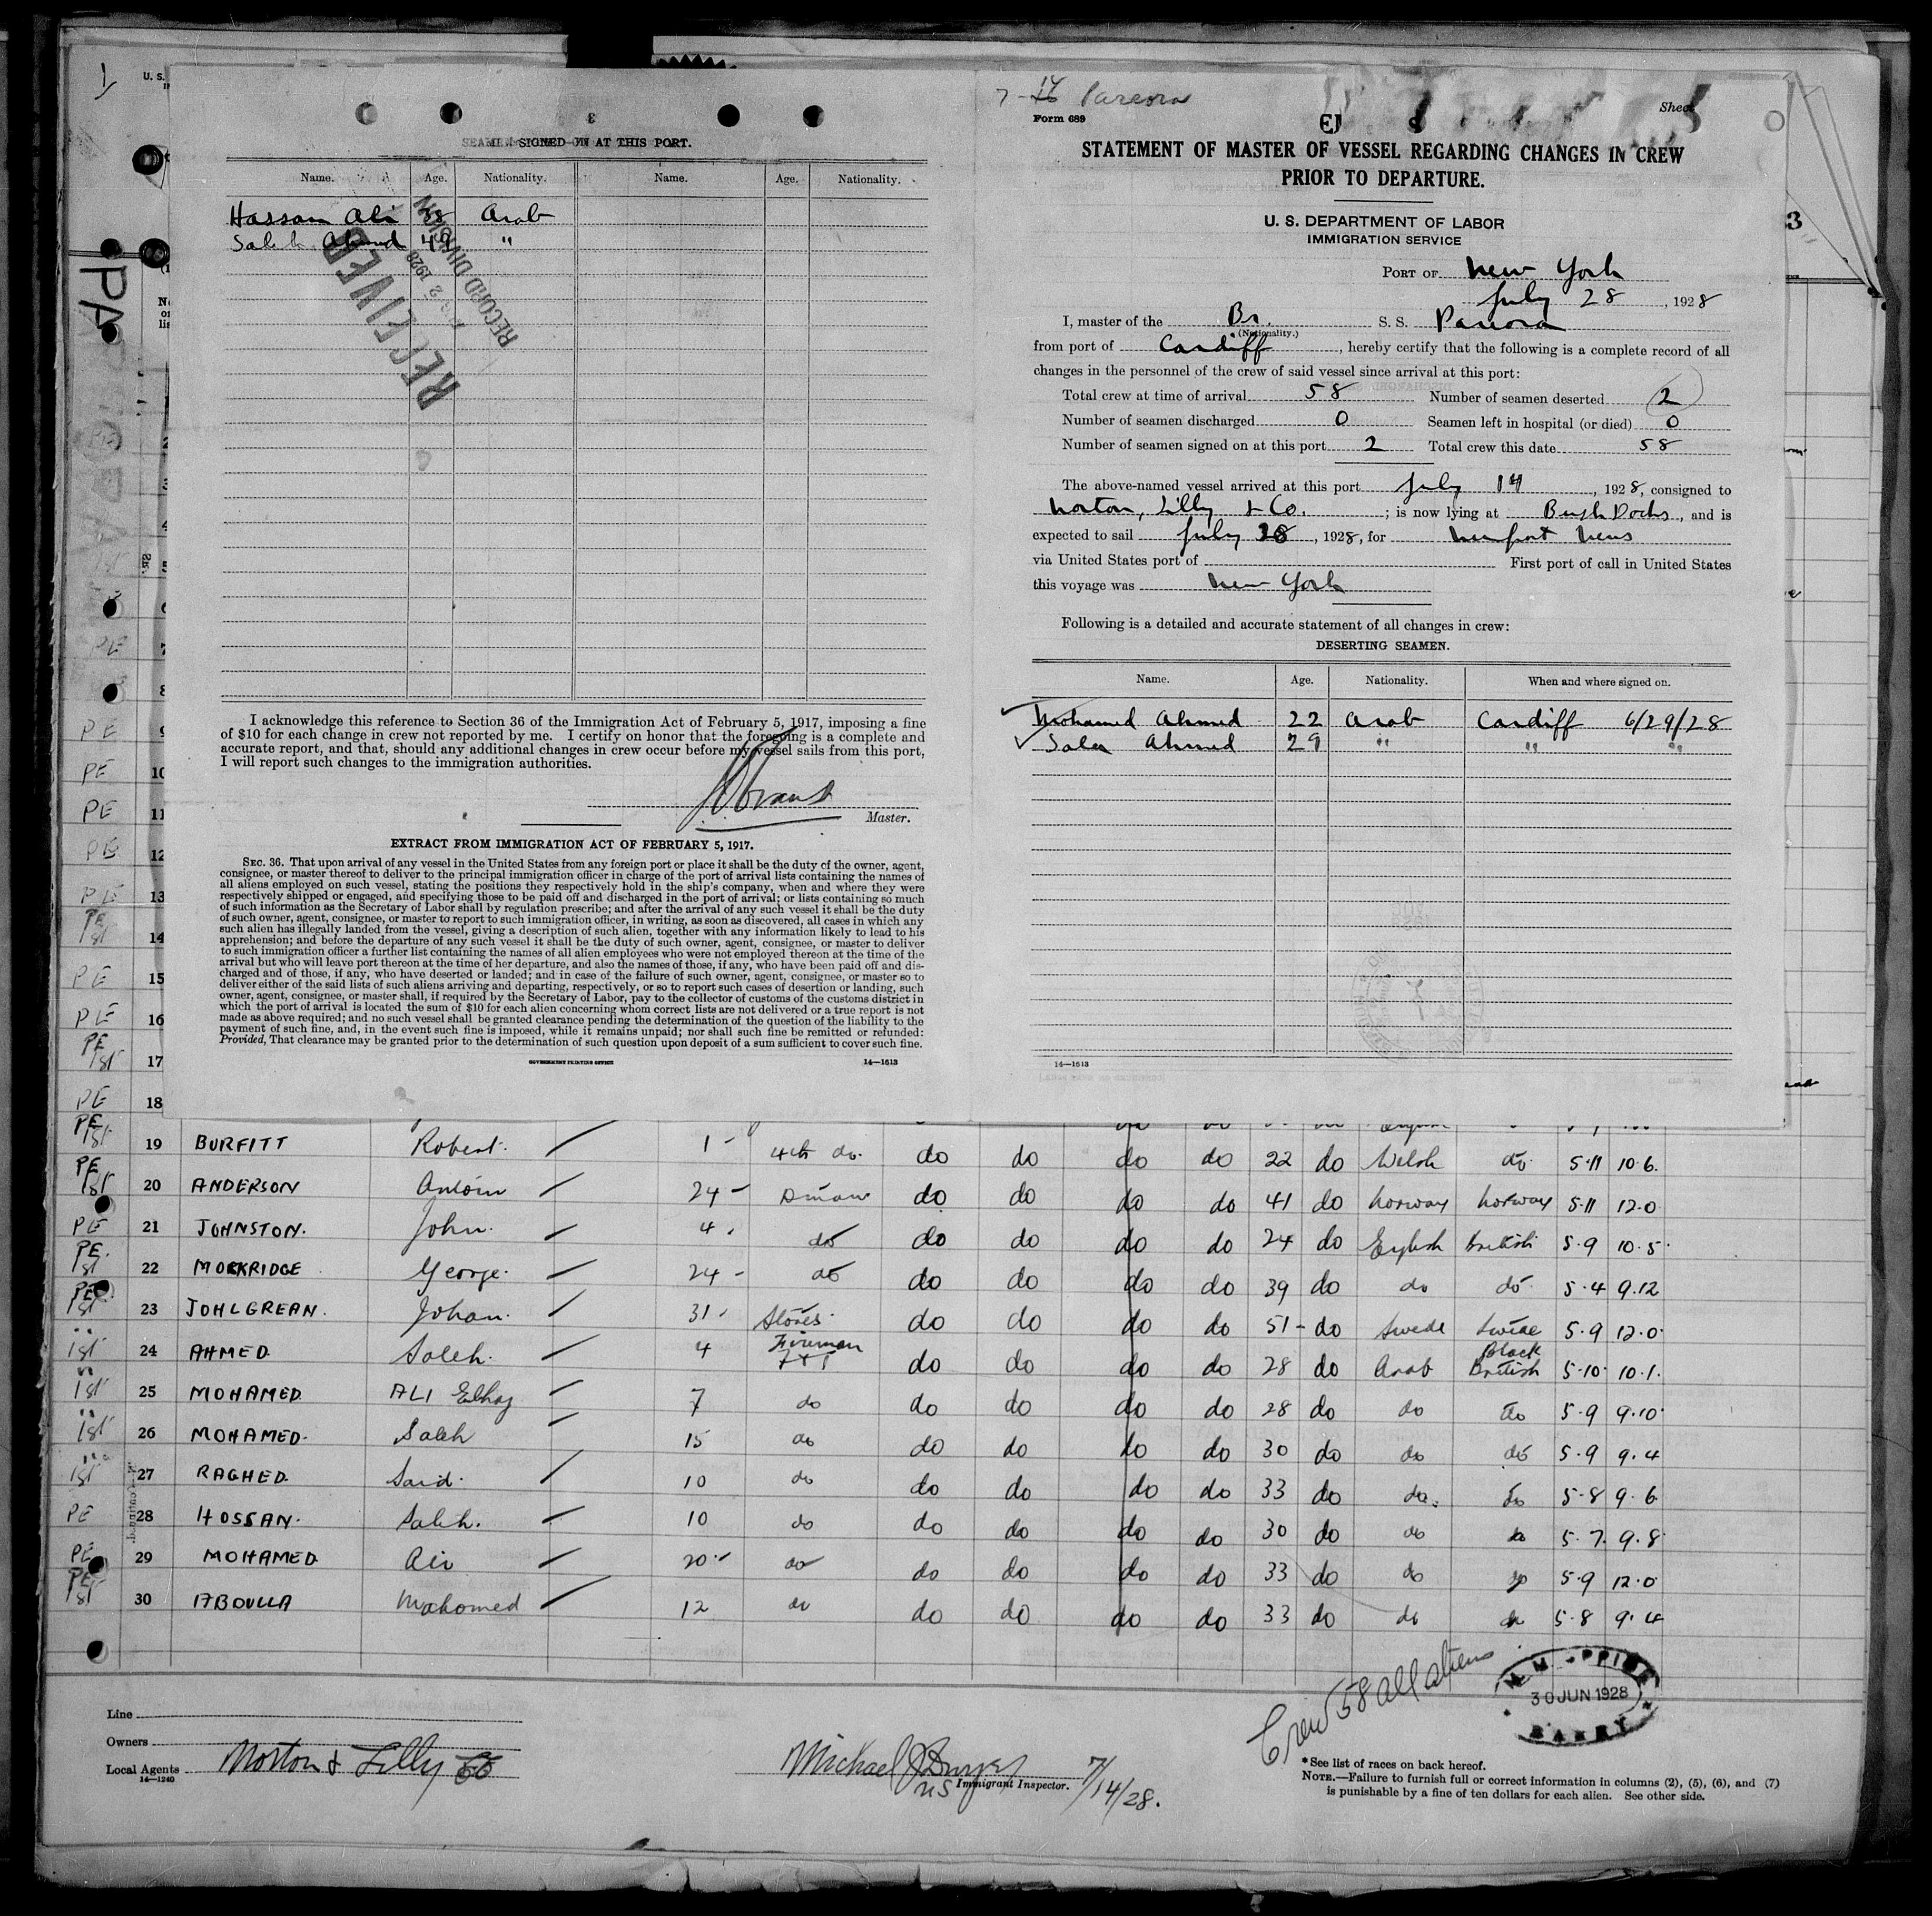 SEAMEN SIGNED ON AT THIS PORT.
Name. Age. Nationality. Name. Age. Nationality.
Hassan Ali Arab
Saleh Ahmed 49 "
RECEIVED
2 1928
RECORD DIVISION
I acknowledge this reference to Section 36 of the Immigration Act of February 5, 1917, imposing a fine
of $10 for each change in crew not reported by me. I certify on honor that the foregoing is a complete and
accurate report, and that, should any additional changes in crew occur before my vessel sails from this port,
I will report such changes to the immigration authorities.
Master.
EXTRACT FROM IMMIGRATION ACT OF FEBRUARY 5, 1917.
SEC. 36. That upon arrival of any vessel in the United States from any foreign port or place it shall be the duty of the owner, agent,
consignee, or master thereof to deliver to the principal immigration officer in charge of the port of arrival lists containing the names of
all aliens employed on such vessel, stating the positions they respectively hold in the ship's company, when and where they were
respectively shipped or engaged, and specifying those to be paid off and discharged in the port of arrival; or lists containing so much
of such information as the Secretary of Labor shall by regulation prescribe; and after the arrival of any such vessel it shall be the duty
of such owner, agent, consignee, or master to report to such immigration officer, in writing, as soon as discovered, all cases in which any
such alien has illegally landed from the vessel, giving a description of such alien, together with any information likely to lead to his
apprehension; and before the departure of any such vessel it shall be the duty of such owner, agent, consignee, or master to deliver
to such immigration officer a further list containing the names of all alien employees who were not employed thereon at the time of the
arrival but who will leave port thereon at the time of her departure, and also the names of those, if any, who have been paid off and dis-
charged and of those, if any, who have deserted or landed; and in case of the failure of such owner, agent, consignee, or master so to
deliver either of the said lists of such aliens arriving and departing, respectively, or so to report such cases of desertion or landing, such
owner, agent, consignee, or master shall, if required by the Secretary of Labor, pay to the collector of customs of the customs district in
which the port of arrival is located the sum of $10 for each alien concerning whom correct lists are not delivered or a true report is not
made as above required; and no such vessel shall be granted clearance pending the determination of the question of the liability to the
payment of such fine, and, in the event such fine is imposed, while it remains unpaid; nor shall such fine be remitted or refunded:
Provided, That clearance may be granted prior to the determination of such question upon deposit of a sum sufficient to cover such fine.
GOVERNMENT PRINTING OFFICE 14—1613
7-14 Pareora
Form 689
Sheet
STATEMENT OF MASTER OF VESSEL REGARDING CHANGES IN CREW
PRIOR TO DEPARTURE.
U. S. DEPARTMENT OF LABOR
IMMIGRATION SERVICE
PORT OF New York
July 28, 1928
I, master of the Br. S. S. Pareora
(Nationality.)
from port of Cardiff, hereby certify that the following is a complete record of all
changes in the personnel of the crew of said vessel since arrival at this port:
Total crew at time of arrival 58 Number of seamen deserted 2
Number of seamen discharged 0 Seamen left in hospital (or died) 0
Number of seamen signed on at this port 2 Total crew this date 58
The above-named vessel arrived at this port July 14, 1928, consigned to
Norton, Lilly & Co.; is now lying at Bush Docks, and is
expected to sail July 28, 1928, for Newport News
via United States port of First port of call in United States
this voyage was New York
Following is a detailed and accurate statement of all changes in crew:
DESERTING SEAMEN.
Name. Age. Nationality. When and where signed on.
Mohamed Ahmed 22 Arab Cardiff 6/29/28
Salea Ahmed 29 " " "
14—1613
PA
U. S.
9 PE
10 PE
11 PE
12 PE
13 PLE
14 PE 1st
15 PE
16 PLE
17 PE 1st
18 PE
PE 1st 19 BURFITT Robert. 1 - 4th do. do do do do 22 do Welsh do 5·11 10·6.
PE 1st 20 ANDERSON Antoin 24 - do do do do 41 do Norway Norway 5·11 12·0
PE 21 JOHNSTON. John. 4 . do do do do do 24 do English British 5·9 10·5
PE 1st 22 MOCKRIDGE George. 24 - do do do do do 39 do do do 5·4 9·12
PE 1st 23 JOHLGREAN. Johan. 31 - Stores do do do do 51 - do Swede Swede 5·9 12·0
1st 24 AHMED Saleh. 4 Fireman do do do do 28 do Arab Black British 5·10 10·1
1st 25 MOHAMED ALI Elhag 7 do do do do do 28 do do do 5·9 9·10
1st 26 MOHAMED. Saleh 15 do do do do do 30 do do do 5·9 9·4
1st 27 RAGHED Said. 10 do do do do do 33 do do. do 5·8 9·6
PE 28 HOSSAN. Saleh. 10 do do do do do 30 do do do 5·7 9·8
PE 29 MOHAMED Ali 20 - do do do do do 33 do do do 5·9 12·0
PE 1st 30 ABOULLA Mahomed 12 do do do do do 33 do do do 5·8 9·4
Crew 58 all aliens
30 JUN 1928
BARRY
Line
Owners
Local Agents Norton & Lilly Co
14—1240
Michael J Dwyer 7/14/28.
US Immigrant Inspector.
*See list of races on back hereof.
NOTE.—Failure to furnish full or correct information in columns (2), (5), (6), and (7)
is punishable by a fine of ten dollars for each alien. See other side.